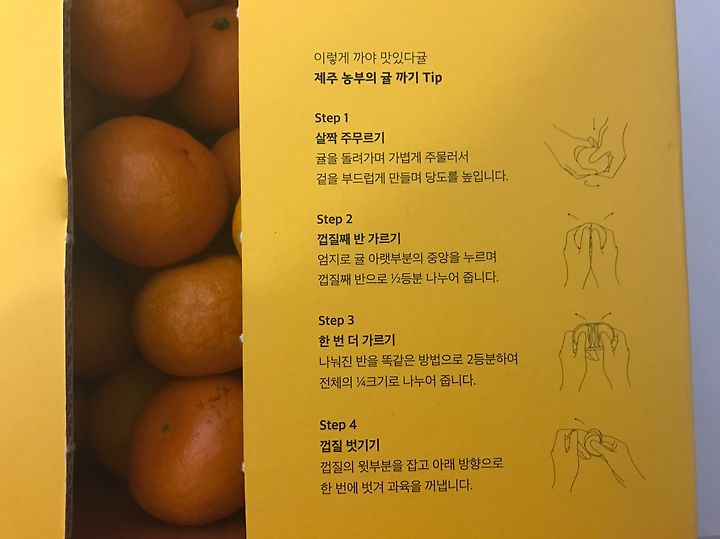 이렇게 까야 맛있다귤
제주 농부의 귤 까기 Tip
Step 1
살짝 주무르기
귤을 돌려가며 가볍게 주물러서
겉을 부드럽게 만들며 당도를 높입니다.
Step 2
껍질째 반 가르기
엄지로 귤 아랫부분의 중앙을 누르며
껍질째 반으로 ½등분 나누어 줍니다.
Step 3
한 번 더 가르기
나눠진 반을 똑같은 방법으로 2등분하여
전체의 ¼크기로 나누어 줍니다.
Step 4
껍질 벗기기
껍질의 윗부분을 잡고 아래 방향으로
한 번에 벗겨 과육을 꺼냅니다.